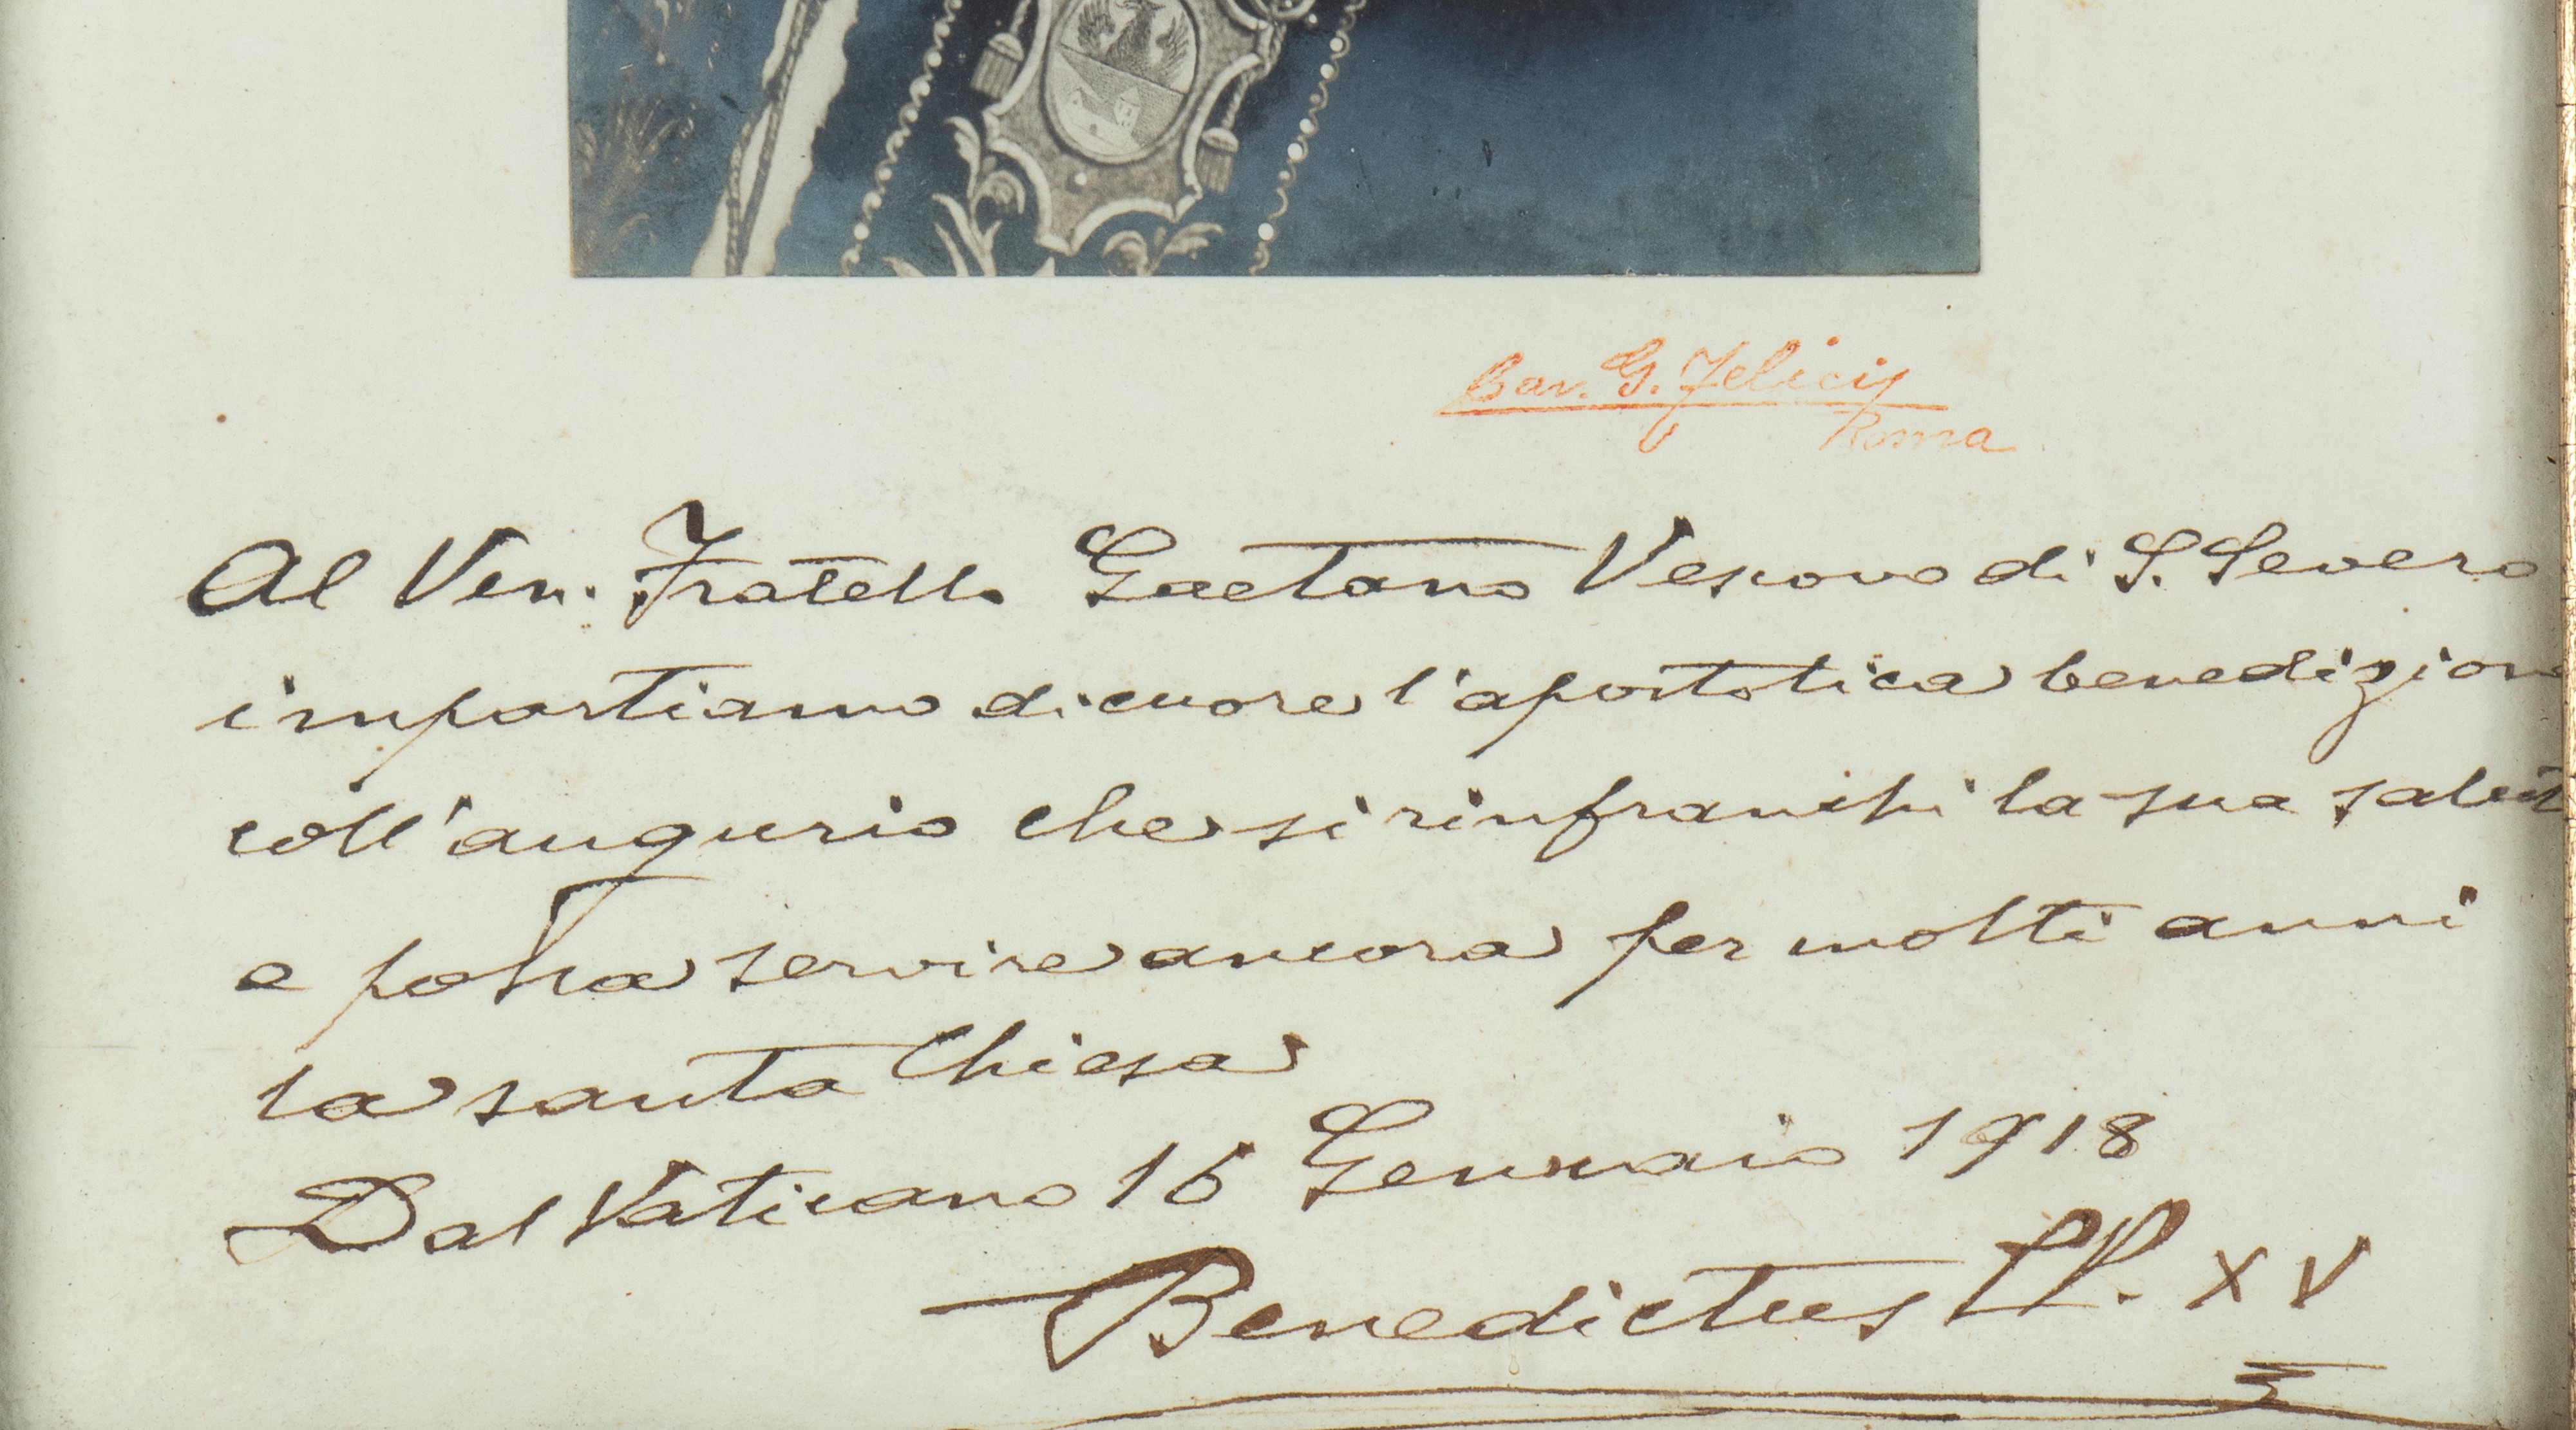 Cav. G. Felici
Roma
Al Ven. Fratello Gaetano Vescovo di S. Severo
impartiamo di cuore l'apostolica benedizione
coll'augurio che si rinfranchi la sua salut
e possa servire ancora per molti anni
la santa Chiesa
Dal Vaticano 16 Gennaio 1918
Benedictus PP. XV